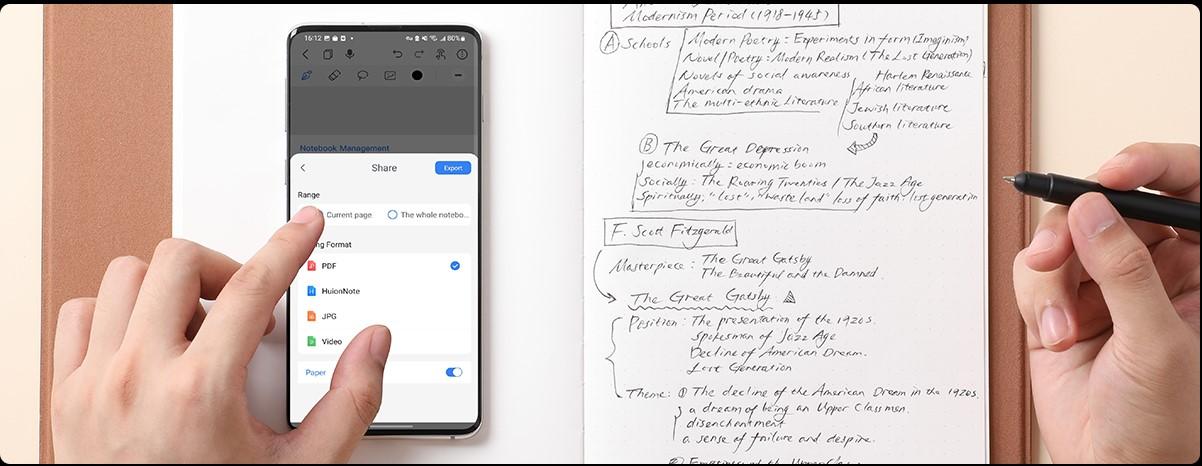 16:12
80%
Notebook Management
Share
Export
Range
Current page
The whole notebo...
ng Format
PDF
HuionNote
JPG
Video
Paper
Modernism Period (1918-1945)
Ⓐ Schools
Modern Poetry: Experiments in form (Imaginism)
Novel/Poetry: Modern Realism (The Lost Generation)
Novels of social awareness
American drama
The multi-ethnic Literature
Harlem Renaissance
African literature
Jewish literature
Southern literature
Ⓑ The Great Depression
economically: economic boom
Socially: The Roaring Twenties / The Jazz Age
Spiritually: "Lost", "waste land" loss of faith. lost generation
F. Scott Fitzgerald
Masterpiece: The Great Gatsby
The Beautiful and the Damned.
The Great Gatsby
Position: The presentation of the 1920s.
spokesman of Jazz Age
Decline of American Dream.
Lost Generation
Theme: ① The decline of the American Dream in the 1920s.
a dream of being an Upper Classman.
disenchantment
a sense of failure and despire.